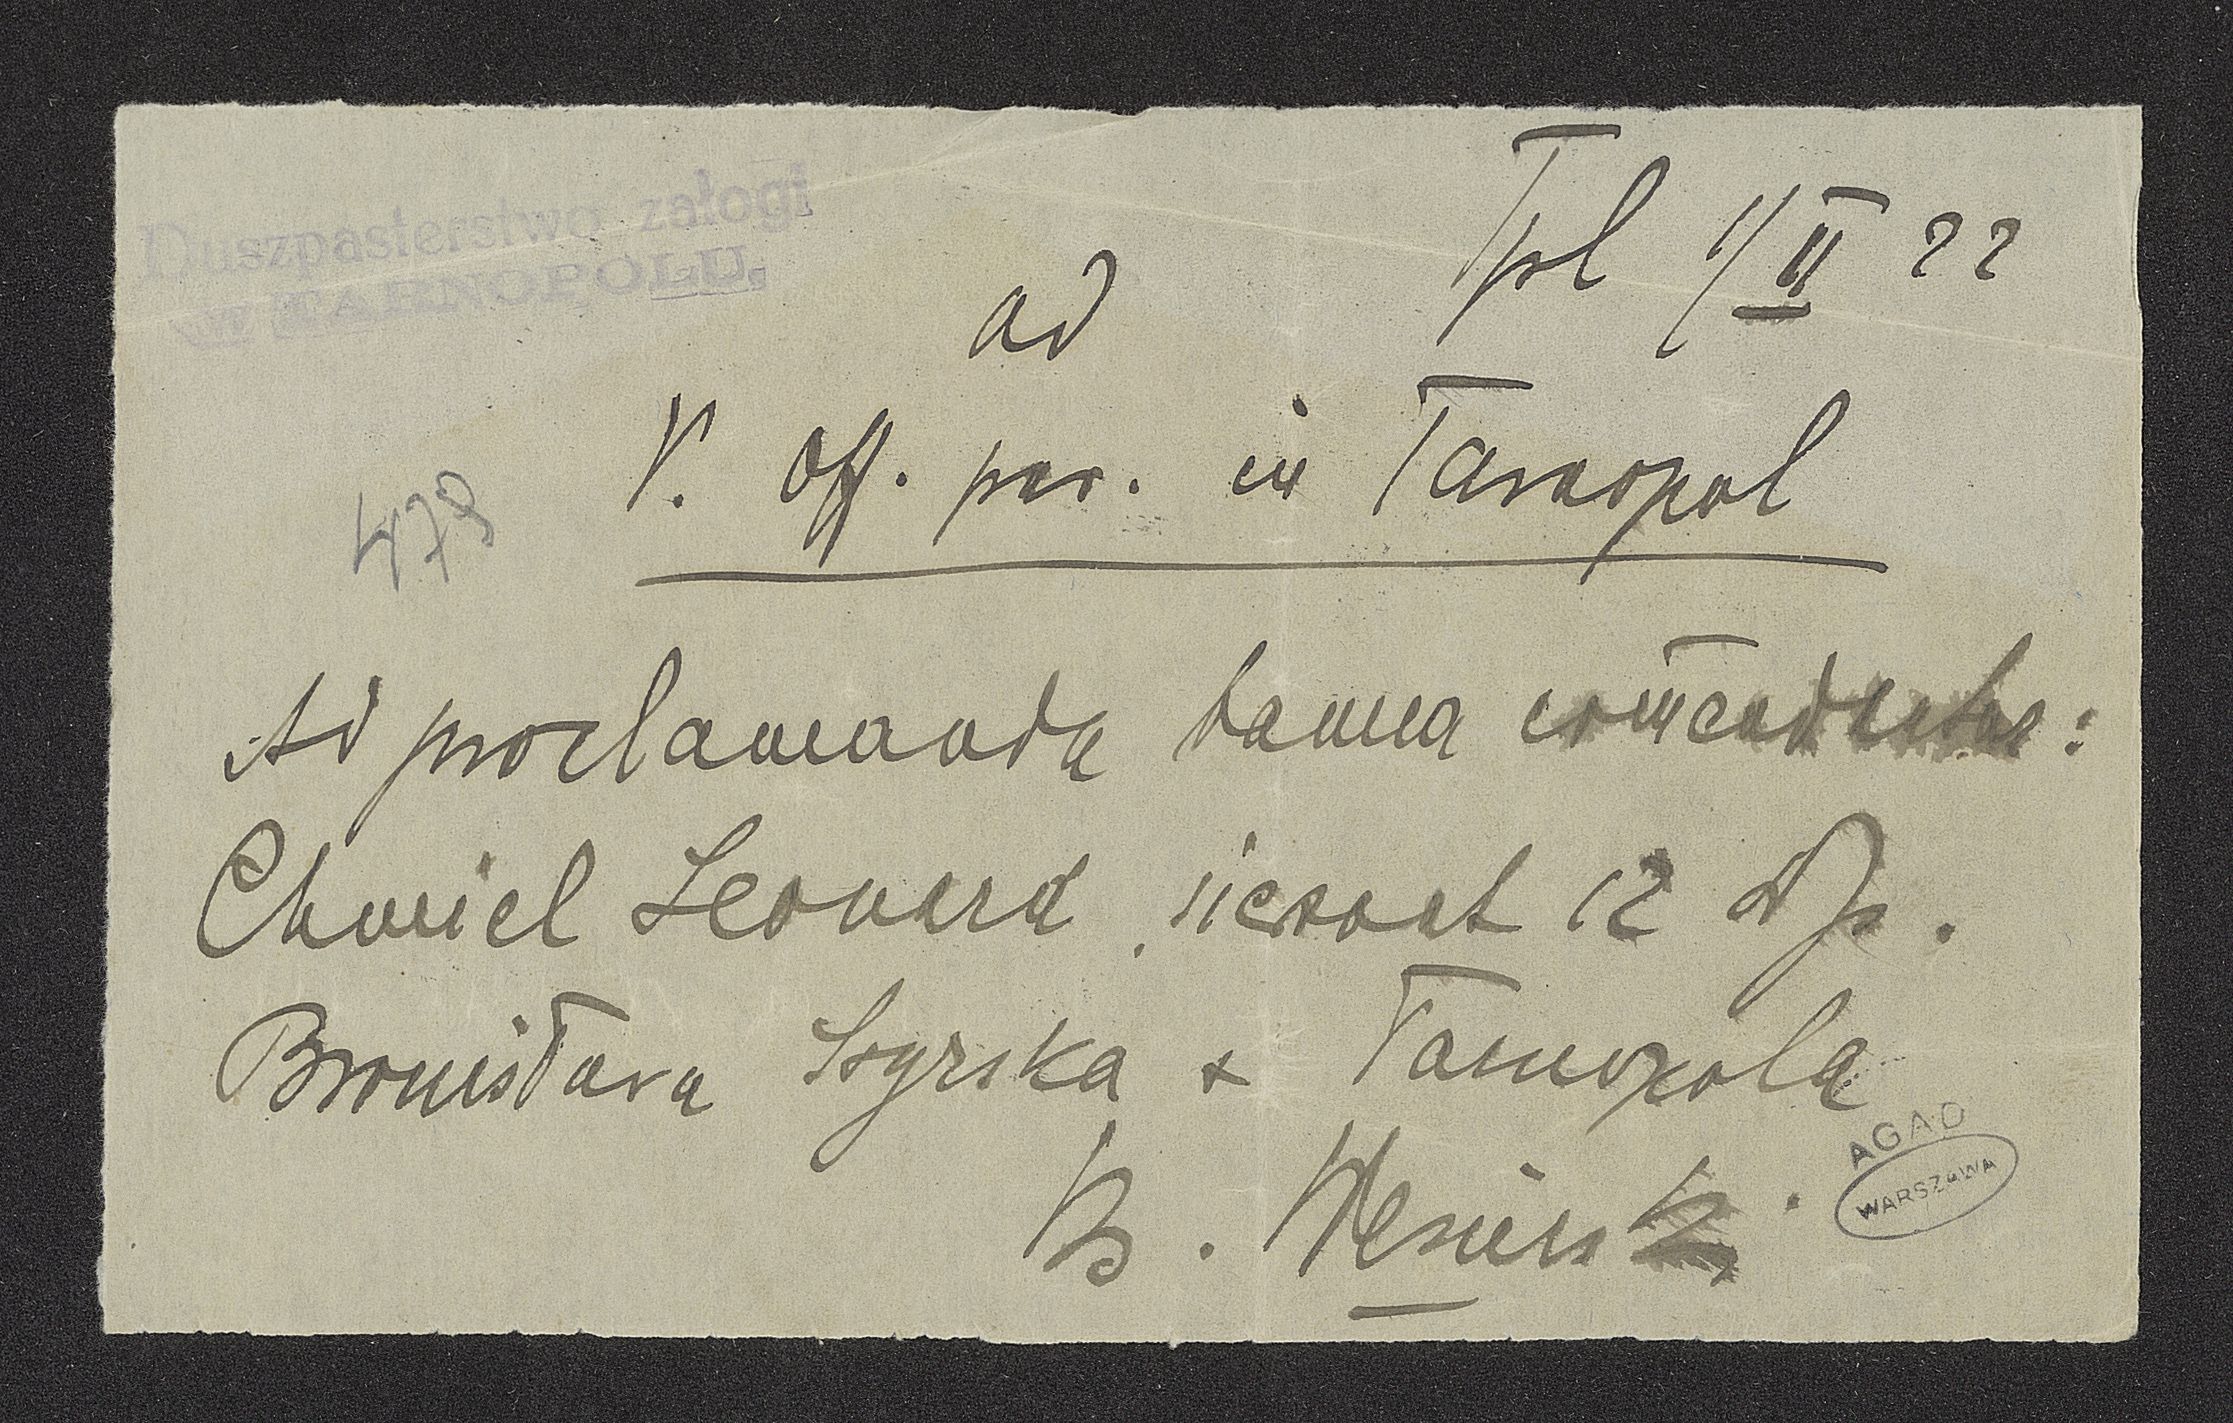 Duszpasterstwo załogi
W TARNOPOLU.
Tpl 1/II 22
ad
V. Off. par. in Tarnopol
479
Ad proclamanda banna com̄endantur:
Chmiel Leonard, sierżant 12 dyw.
Bronisława z Tarnopola
AGAD
WARSZAWA